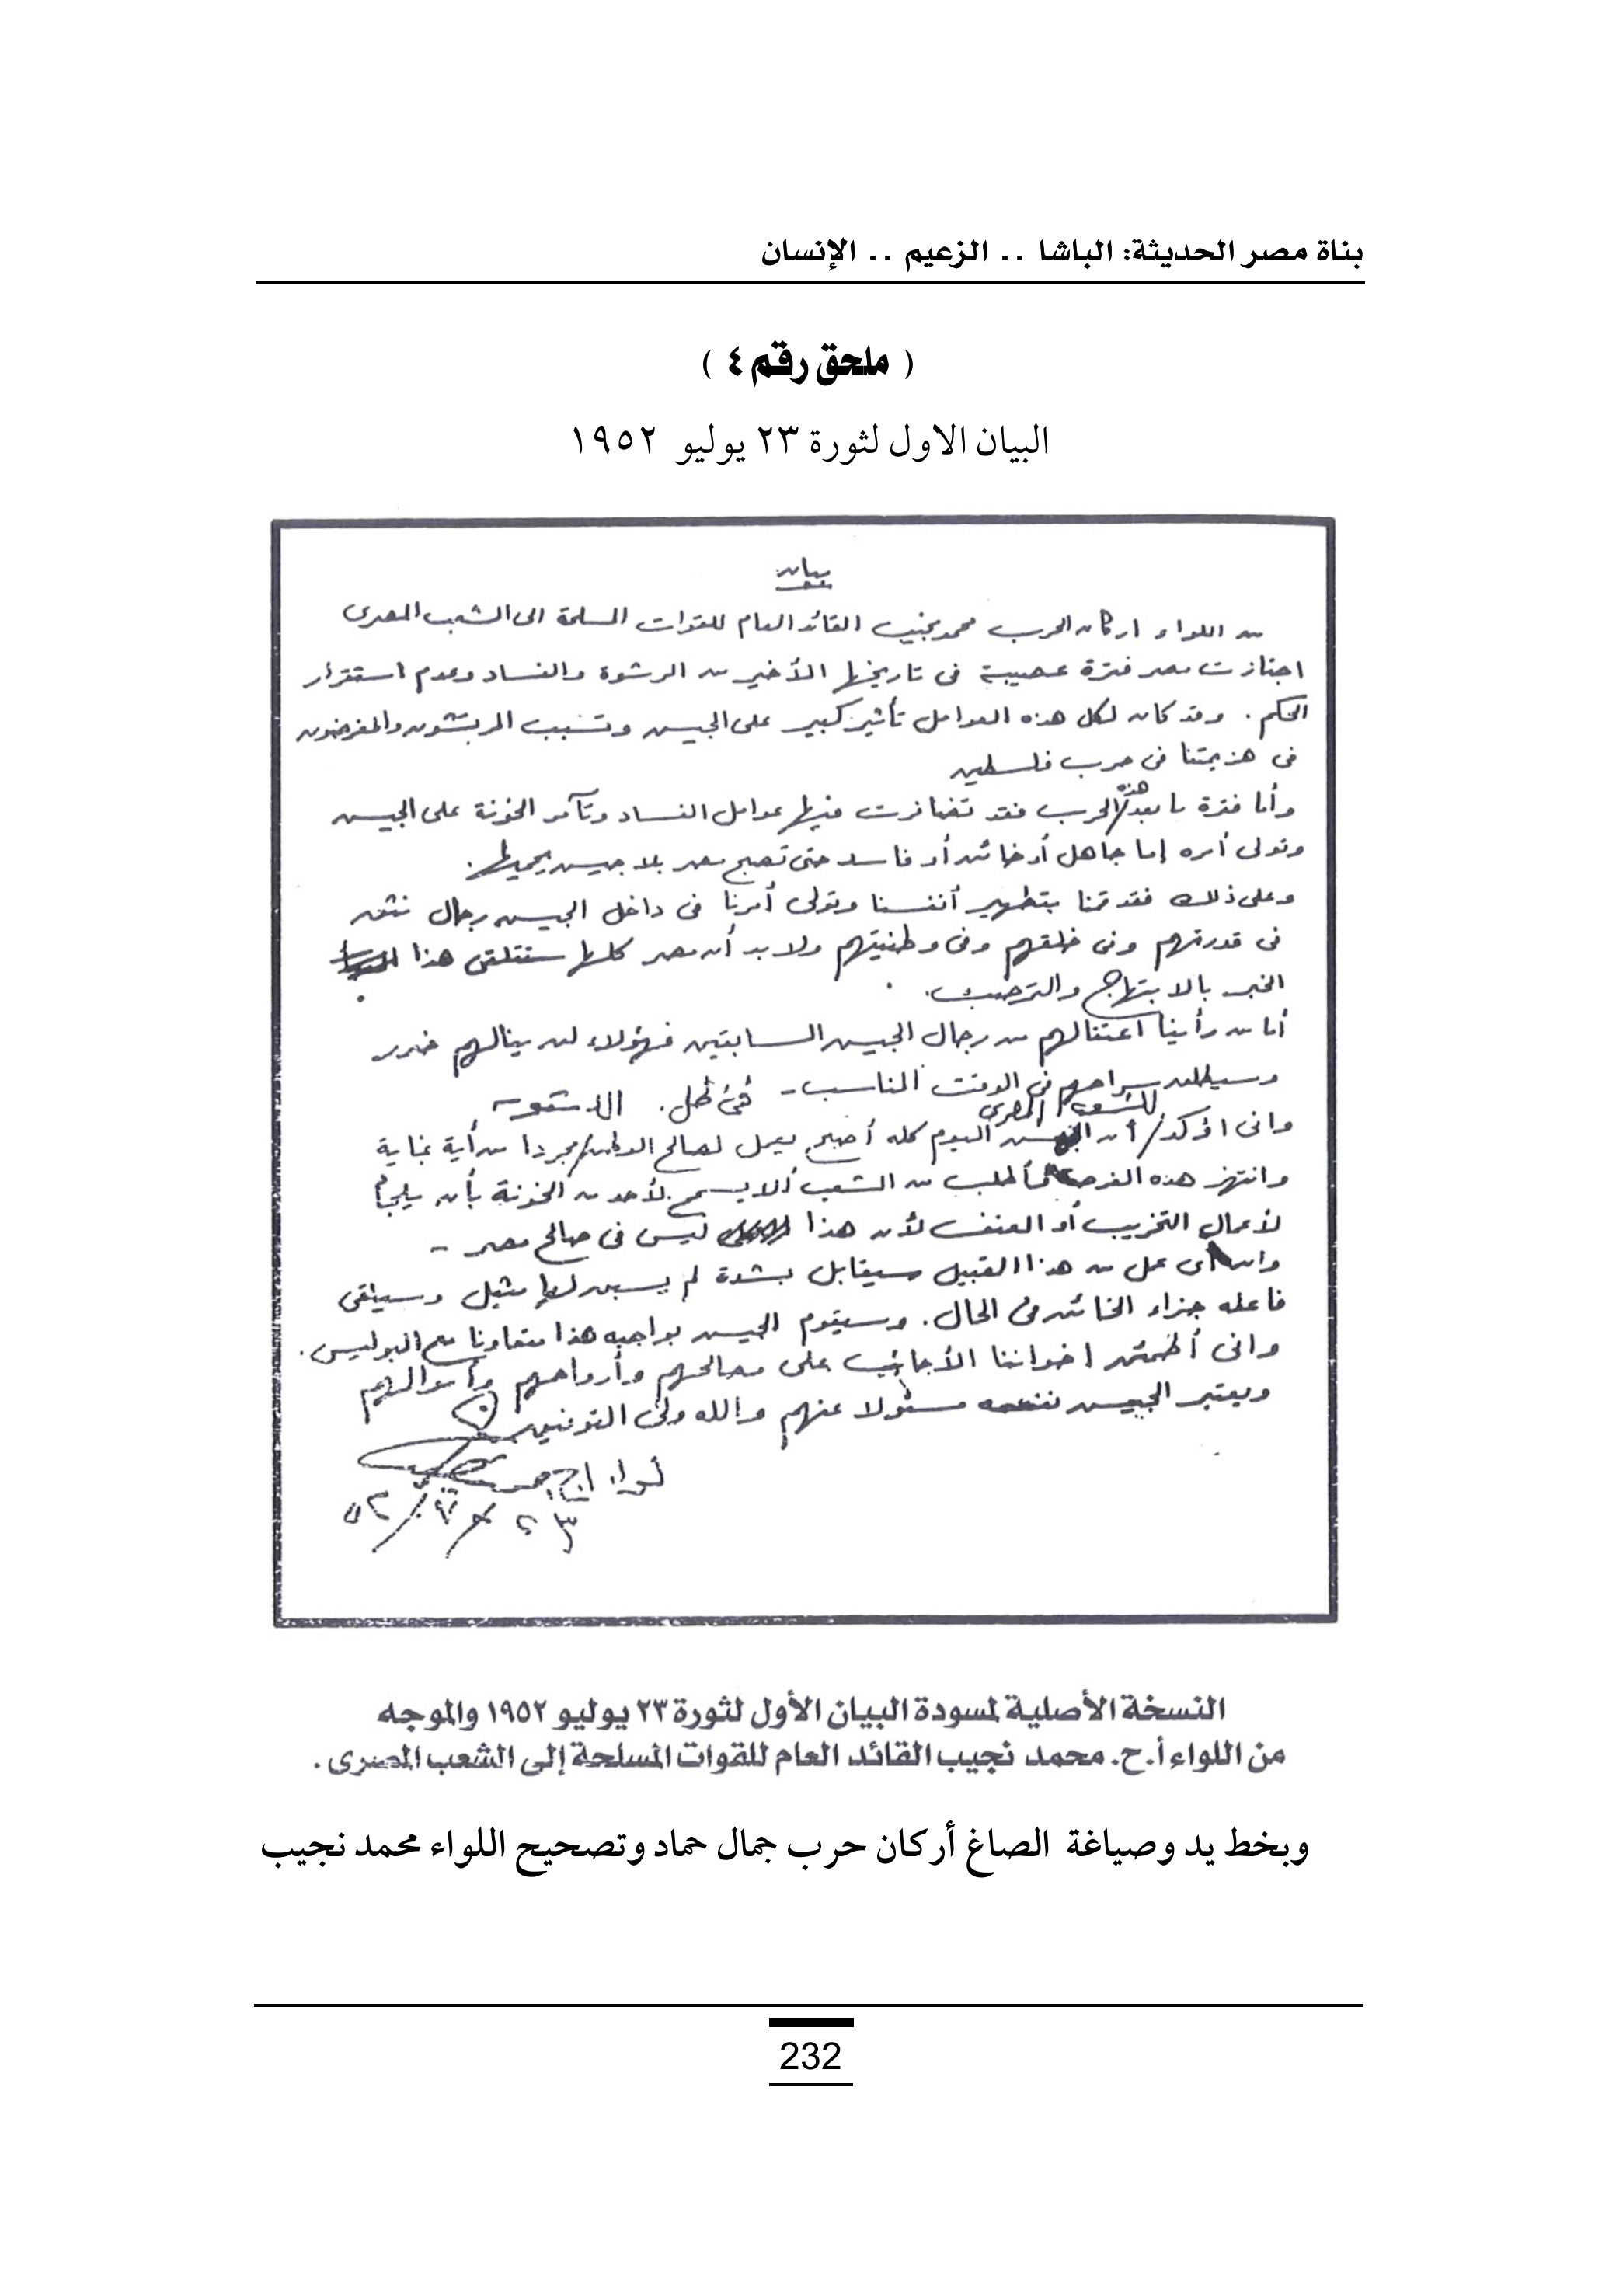 بناة مصر الحديثة: الباشا .. الزعيم .. الإنسان
( ملحق رقم ٤ )
البيان الاول لثورة ٢٣ يوليو ١٩٥٢
بيان
من اللواء اركان الحرب محمد نجيب القائد العام للقوات المسلحة الى الشعب المصرى
اجتازت مصر فترة عصيبة فى تاريخها الأخير من الرشوة والفساد وعدم استقرار
الحكم . وقد كان لكل هذه العوامل تأثير كبير على الجيش وتسبب المرتشون والمغرضون
فى هزيمتنا فى حرب فلسطين
وأما فترة ما بعد هذه الحرب فقد تضافرت فيها عوامل الفساد وتآمر الخونة على الجيش
وتولى أمره إما جاهل أو خائن أو فاسد حتى تصبح مصر بلا جيش يحميها.
وعلى ذلك فقد قمنا بتطهير أنفسنا وتولى أمرنا فى داخل الجيش رجال نثق
فى قدرتهم وفى خلقهم وفى وطنيتهم ولا بد أن مصر كلها ستتلقى هذا
الخبر بالابتهاج والترحيب .
أما من رأينا اعتقالهم من رجال الجيش السابقين فهؤلاء لن ينالهم ضرر
وسيطلق سراحهم فى الوقت المناسب -
وانى أؤكد للشعب المصرى أن الجيش اليوم كله أصبح يعمل لصالح الوطن فى ظل الدستور مجردا من أية غاية
وانتهز هذه الفرصة فأطلب من الشعب ألا يسمح لأحد من الخونة بأن يلجأ
لأعمال التخريب أو العنف لأن هذا ليس فى صالح مصر -
وان أى عمل من هذا القبيل سيقابل بشدة لم يسبق لها مثيل وسيلقى
فاعله جزاء الخائن فى الحال . وسيقوم الجيش بواجبه هذا متعاونا مع البوليس .
وانى أطمئن اخواننا الأجانب على مصالحهم وأرواحهم وأموالهم
ويعتبر الجيش نفسه مسئولا عنهم والله ولى التوفيق
لواء ا ح
٢٣ / ٧ / ٥٢
النسخة الأصلية لمسودة البيان الأول لثورة ٢٣ يوليو ١٩٥٢ والموجه
من اللواء أ.ح. محمد نجيب القائد العام للقوات المسلحة إلى الشعب المصرى .
وبخط يد وصياغة الصاغ أركان حرب جمال حماد وتصحيح اللواء محمد نجيب
232